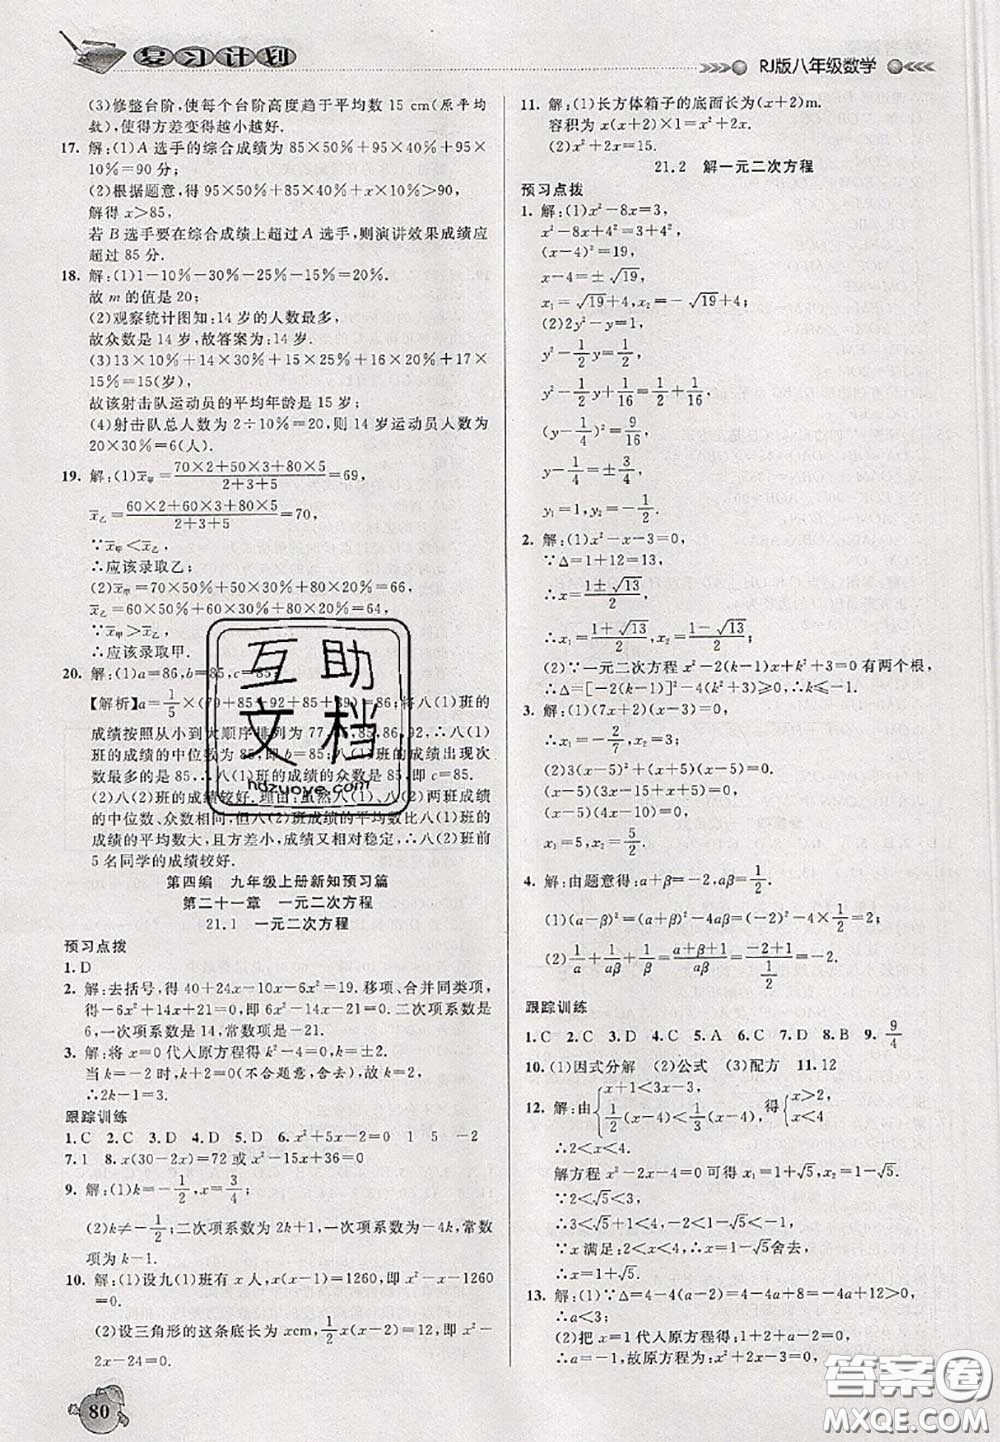 复习计划
RJ版八年级数学
(3)修整台阶,使每个台阶高度趋于平均数 15 cm(原平均
数),使得方差变得越小越好.
17. 解:(1)A 选手的综合成绩为 85×50%+95×40%+
95×10%=90(分);
(2)根据题意,得 95×50%+85×40%+x×10%>90,
解得 x>85,
若 B 选手要在综合成绩上超过 A 选手,则演讲效果成绩应
超过 85 分.
18. 解:(1)1-10%-30%-25%-15%=20%.
故 m 的值是 20;
(2)观察统计图知:14 岁的人数最多,
故众数是 14 岁,故答案为:14 岁.
(3)13×10%+14×30%+15×25%+16×20%+17×
15%=15(岁),
故该射击队运动员的平均年龄是 15 岁;
(4)射击队总人数为 2÷10%=20,则 14 岁运动员人数为
20×30%=6(人).
19. 解:(1)x̄甲=(70×2+50×3+80×5)/(2+3+5)=69,
x̄乙=(60×2+60×3+80×5)/(2+3+5)=70,
∵x̄甲<x̄乙
∴应该录取乙;
(2)x̄甲=70×50%+50×20%+70×30%=66,
x̄乙=60×50%+60×20%+80×30%=64,
∵x̄甲>x̄乙
∴应该录取甲.
20. 解:(1)a=86,b=85,c=85,
【解析】a=1/5×(79+85+92+85+89)=86;将八(1)班的
成绩按照从小到大顺序排列为 77,85,85,86,92,∴八(1)
班的成绩的中位数 b=85;∵八(1)班的成绩出现次
数最多的是 85,∴八(1)班的成绩的众数是 85,即 c=85.
(2)八(2)班的成绩较好.理由:虽然八(1)、八(2)两班成绩
的中位数、众数相同,但八(2)班成绩的平均数比八(1)班
成绩的平均数大,且方差小,成绩又相对稳定,∴八(2)班前
5 名同学的成绩较好.
第四编 九年级上册新知预习篇
第二十一章 一元二次方程
21.1 一元二次方程
预习点拨
1. D
2. 解:去括号,得 40+24x-10x-6x²=19.移项、合并同类项,
得-6x²+14x+21=0,即 6x²-14x-21=0.二次项系数是
6,一次项系数是 14,常数项是-21.
3. 解:将 x=0 代入原方程得 k²-4=0,解得,k=±2.
当 k=-2 时,k+2=0(不合题意,舍去),故 k=2,
∴2k-1=3.
跟踪训练
1. C 2. C 3. D 4. D 5. D 6. x²+5x-2=0 1 5 -2
7. 1 8. x(30-2x)=72 或 x²-15x+36=0
9. 解:(1)k=-1/2,x=3/4;
(2)k≠-1/2;二次项系数为 2k+1,一次项系数为-4k,常数
项为 k-1.
10. 解:(1)设九(1)班有 x 人,x(x-1)=1260,即 x²-x-1260
=0;
(2)设三角形的这条底长为 xcm,1/2x(x-2)=12,即 x²-
2x-24=0.
11. 解:(1)长方体箱子的底面长为(x+2)m.
容积为 x(x+2)×1=x²+2x.
(2)x²+2x=15.
21.2 解一元二次方程
预习点拨
1. 解:(1)x²-8x=3,
x²-8x+4²=3+4²,
(x-4)²=19,
x-4=±√19,
x₁=√19+4,x₂=-√19+4;
(2)2y²-y-1=0,
y²-1/2y=1/2,
y²-1/2y+1/16=1/2+1/16,
(y-1/4)²=9/16,
y-1/4=±3/4,
y₁=1,y₂=-1/2.
2. 解:(1)x²-x-3=0,
∵Δ=1+12=13,
∴x=(1±√13)/2,
∴x₁=(1+√13)/2,x₂=(1-√13)/2;
(2)∵一元二次方程 x²-2(k-1)x+k²+5=0 有两个根,
∴Δ=[-2(k-1)]²-4(k²+5)≥0,∴k≤-2.
3. 解:(1)(7x+2)(x-3)=0,
∴x₁=-2/7,x₂=3;
(2)3(x-5)²+(x+5)(x-5)=0,
(x-5)(3x-15+x+5)=0,
(x-5)(4x-10)=0,
∴x₁=5,x₂=5/2.
4. 解:由题意得:α+β=-2,αβ=1/2.
(1)(α-β)²=(α+β)²-4αβ=(-2)²-4×1/2=2;
(2)1/α+1/β+1/αβ=(α+β+1)/αβ=(-2+1)/(1/2)=-2.
跟踪训练
1. C 2. C 3. C 4. D 5. A 6. D 7. D 8. B 9. 9/4
10. (1)因式分解 (2)公式 (3)配方 11. 12
12. 解:由{x+1<3x-3 1/2(x-4)<1/3(x-4),得{x>2, x<4
∴2<x<4.
解方程 x²-2x-4=0 可得 x₁=1+√5,x₂=1-√5.
∵2<√5<3,
∴3<1+√5<4,-2<1-√5<-1.
∵x 满足:2<x<4,∴x=1-√5舍去,
∴x=1+√5.
13. 解:(1)∵Δ=4-4(a-2)=4-4a+8=-4a+12>0,
∴a<3;
(2)把 x=1 代人原方程得:1+2+a-2=0,
∴a=-1.故原方程为:x²+2x-3=0.
80
互助
文档
hdzuoye.com
答案圈
MXQE.COM